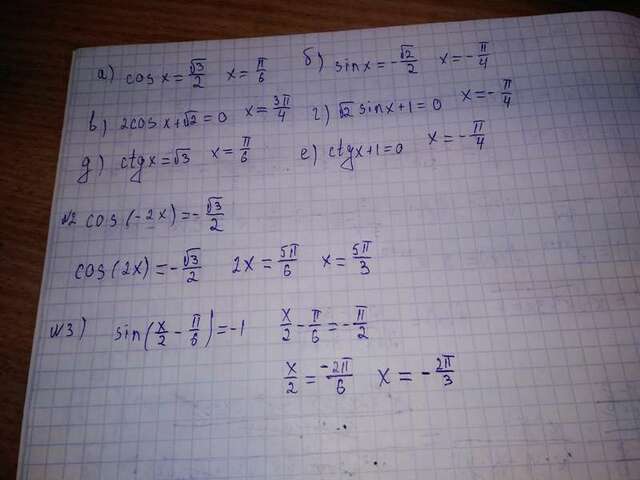 а) cos x = √3/2 x = π/6 б) sin x = -√2/2 x = -π/4
в) 2cos x + √2 = 0 x = 3π/4 г) √2 sin x + 1 = 0 x = -π/4
д) ctg x = √3 x = π/6 е) ctg x + 1 = 0 x = -π/4
№2 cos(-2x) = -√3/2
cos(2x) = -√3/2 2x = 5π/6 x = 5π/3
№3) sin(x/2 - π/6) = -1 x/2 - π/6 = -π/2
x/2 = -2π/6 x = -2π/3